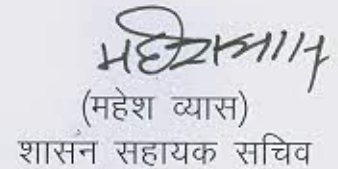 महेश व्यास
(महेश व्यास)
शासन सहायक सचिव